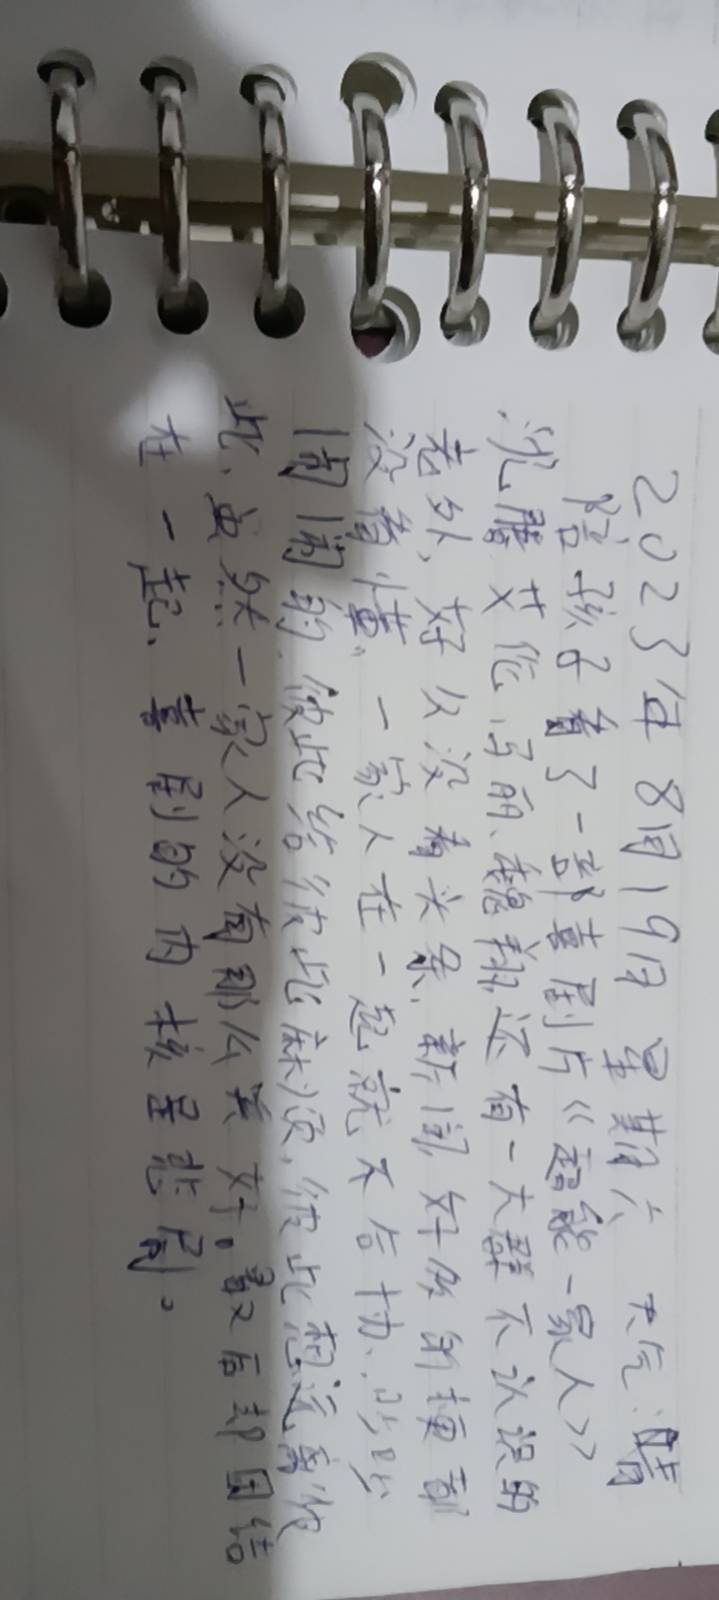 2023年8月19日 星期六 天气:晴
陪孩子看了一部喜剧片《超能一家人》
沈腾艾伦马丽、魏翔还有一大群不认识的
老外、好久没看头条、新闻,好多的梗都
没看懂,一家人在一起就不合协、吵吵
闹闹的,彼此给彼此麻烦,彼此想逃离彼
此、虽然一家人没有那么美好。最后却团结
在一起、喜剧的内核是悲剧。